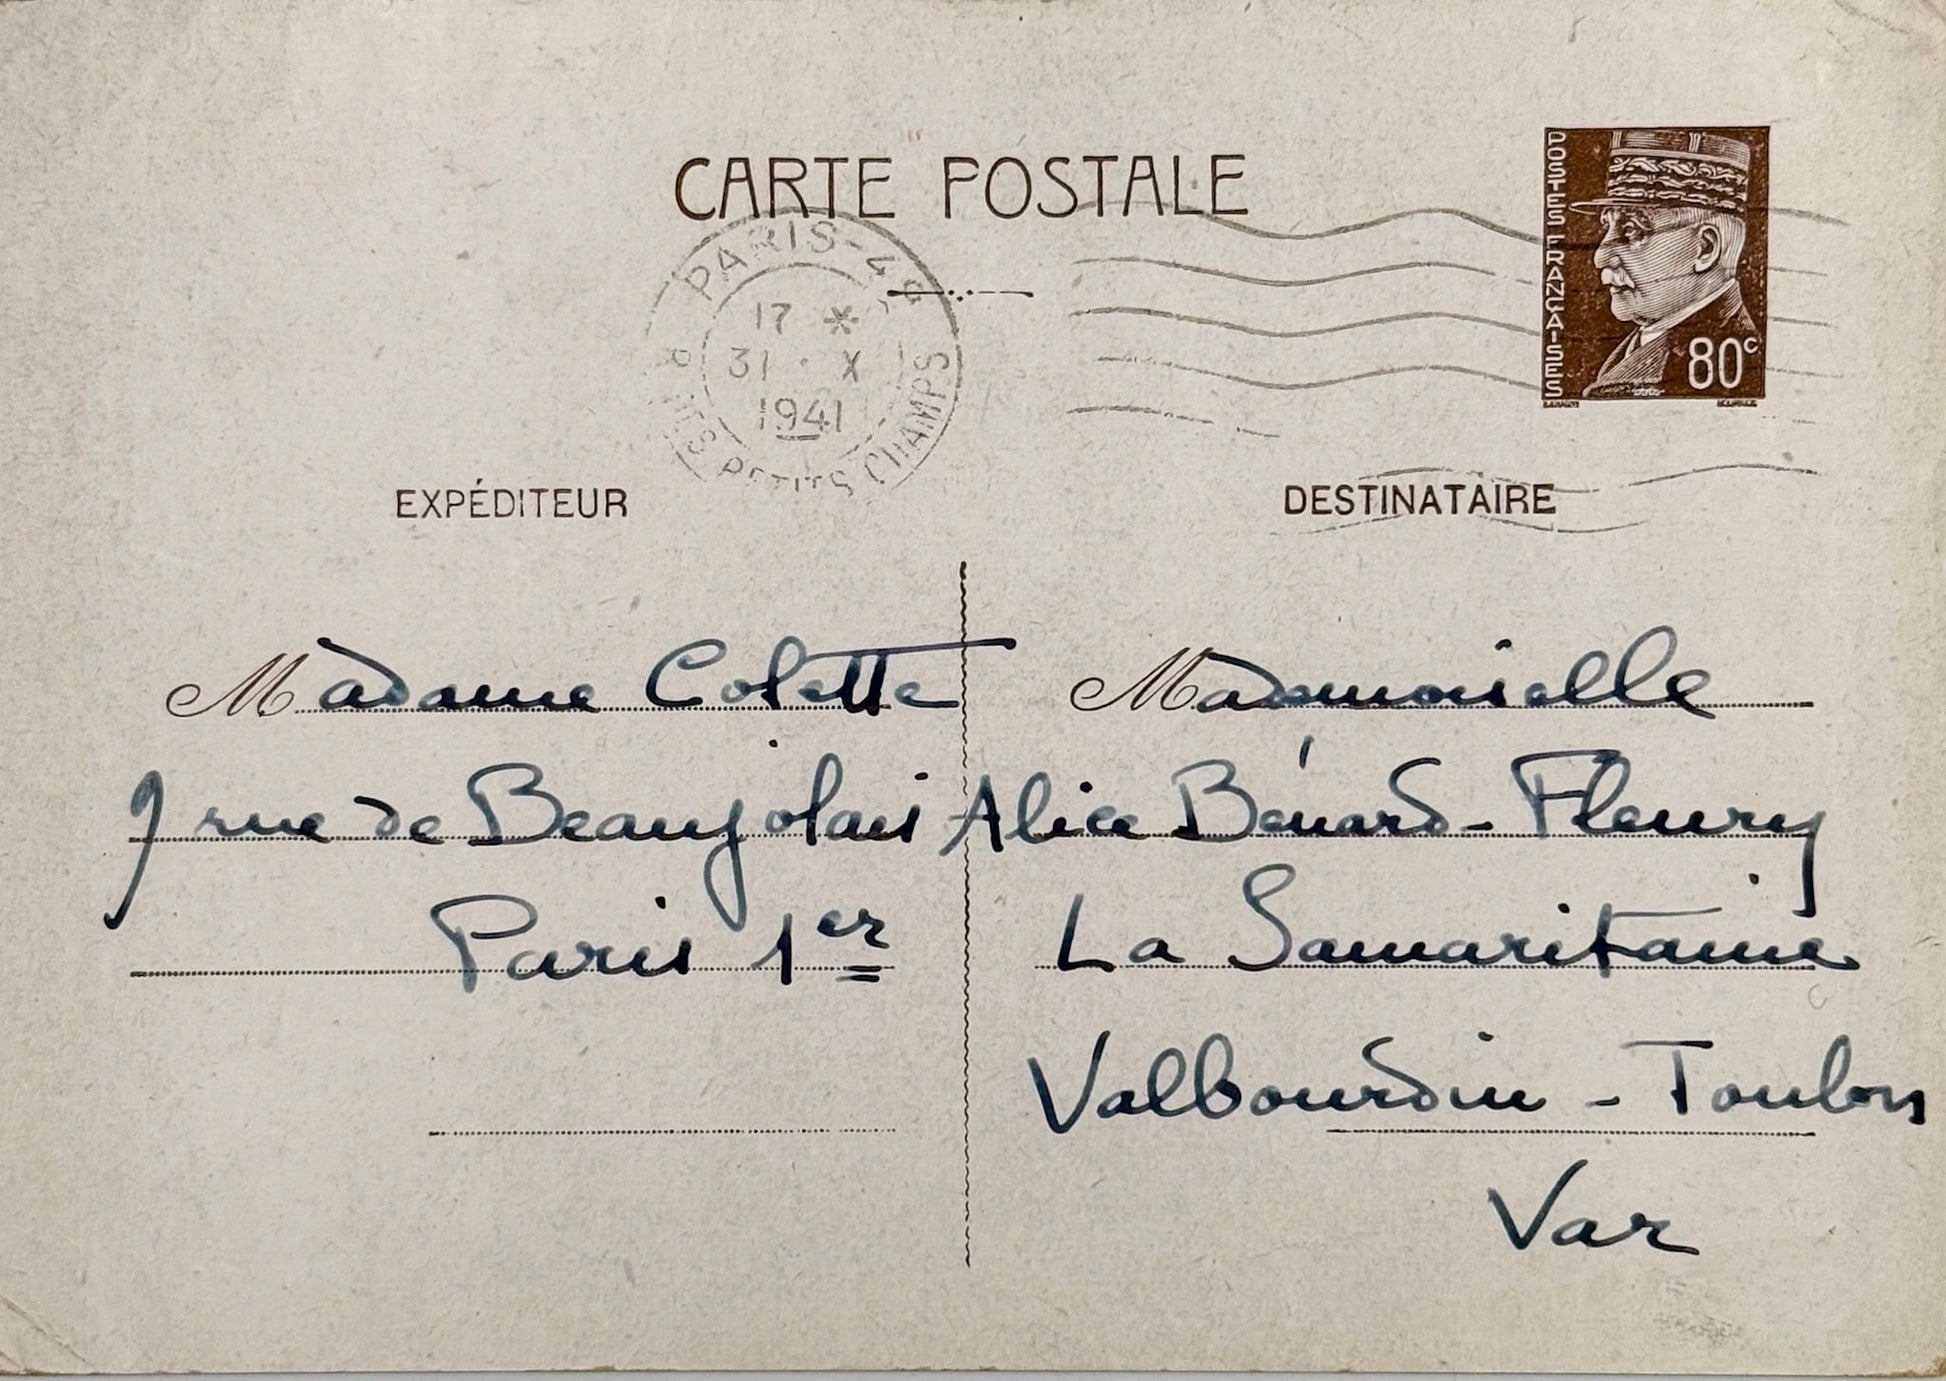 CARTE POSTALE
POSTES FRANÇAISES
80c
PARIS-48
17 *
31 · X
1941
R. DES PETITS CHAMPS
EXPÉDITEUR
Madame Colette
9 rue de Beaujolais
Paris 1er
DESTINATAIRE
Mademoiselle
Alice Bénard-Fleury
La Samaritaine
Valbourdin - Toulon
Var